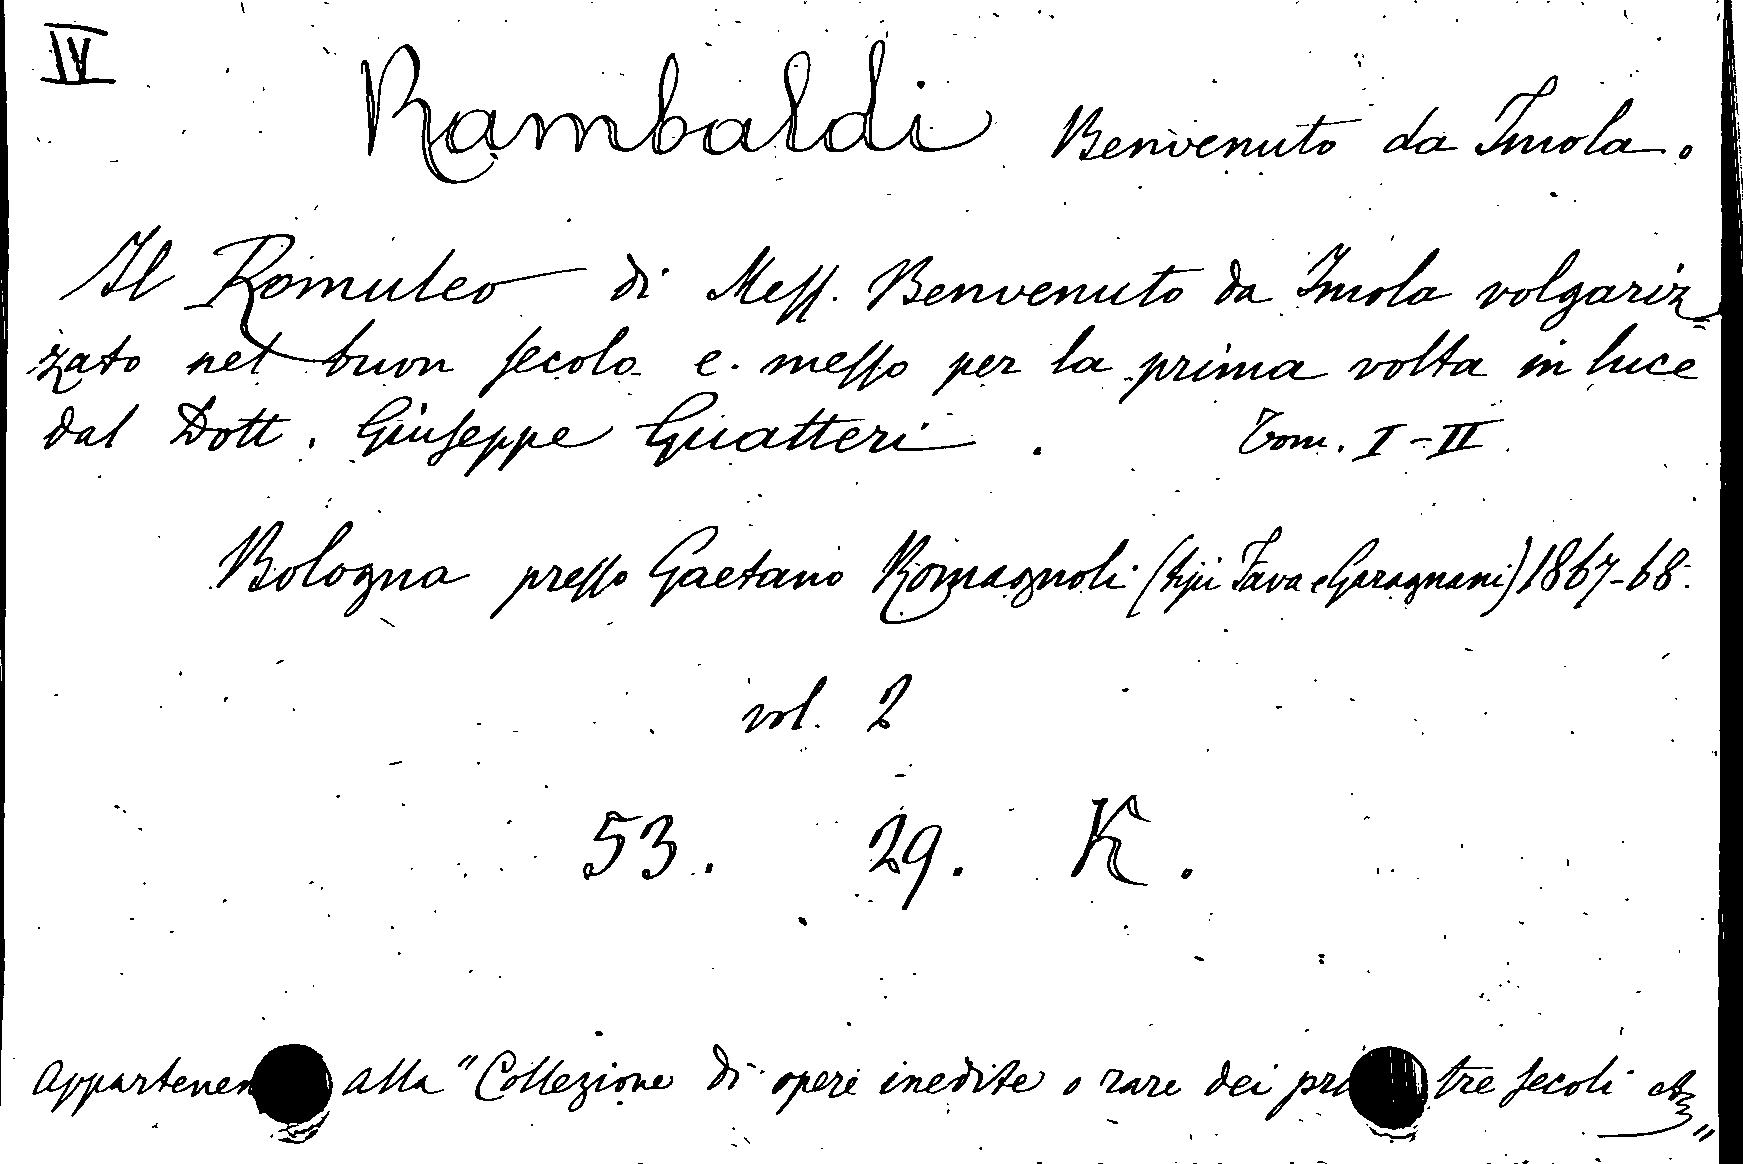 IV
Rambaldi Benvenuto da Imola.
Il Romuleo di Mess. Benvenuto da Imola volgariz=
zato nel buon secolo e. messo per la prima volta in luce
dal Dott. Giuseppe Guatteri. Tom. I-II.
Bologna presso Gaetano Romagnoli (tipi Fava e Garagnani) 1867-68.
vol. 2
53. 29. K.
alla "Collezione di opere inedite o rare dei tre secoli "